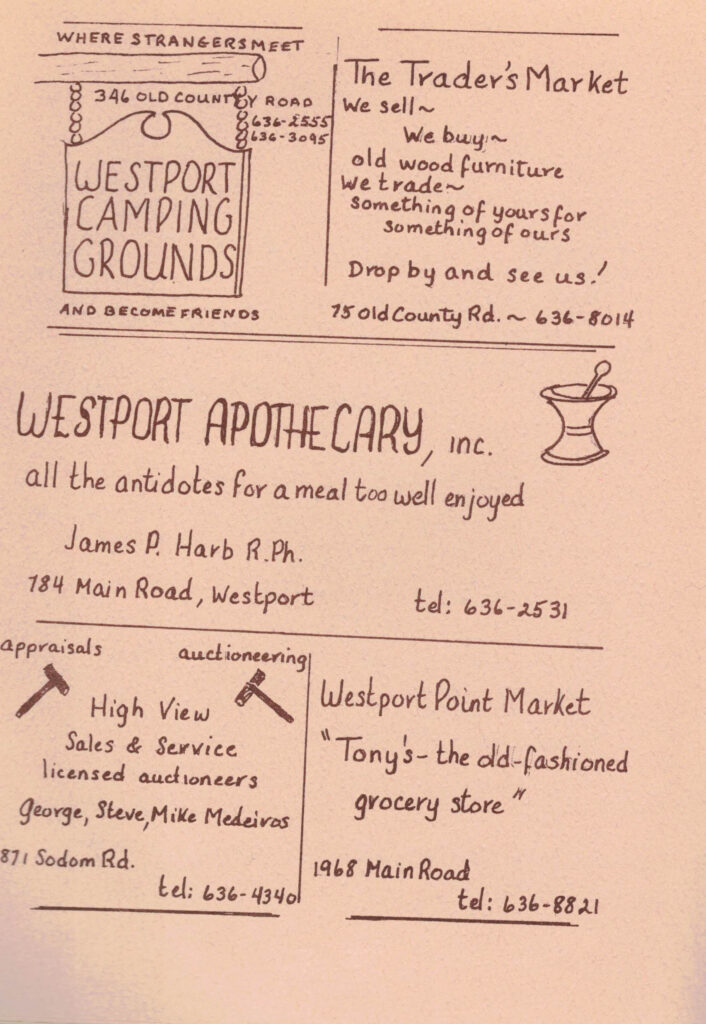 WHERE STRANGERS MEET
346 OLD COUNTY ROAD
636-2555
636-3095
WESTPORT
CAMPING
GROUNDS
AND BECOME FRIENDS
The Trader's Market
We sell~
We buy~
old wood furniture
We trade~
something of yours for
something of ours
Drop by and see us!
75 Old County Rd. ~ 636-8014
WESTPORT APOTHECARY, inc.
all the antidotes for a meal too well enjoyed
James P. Harb R.Ph.
784 Main Road, Westport
tel: 636-2531
appraisals
auctioneering
High View
Sales & Service
licensed auctioneers
George, Steve, Mike Medeiros
871 Sodom Rd.
tel: 636-4340
Westport Point Market
"Tony's - the old-fashioned
grocery store"
1968 Main Road
tel: 636-8821